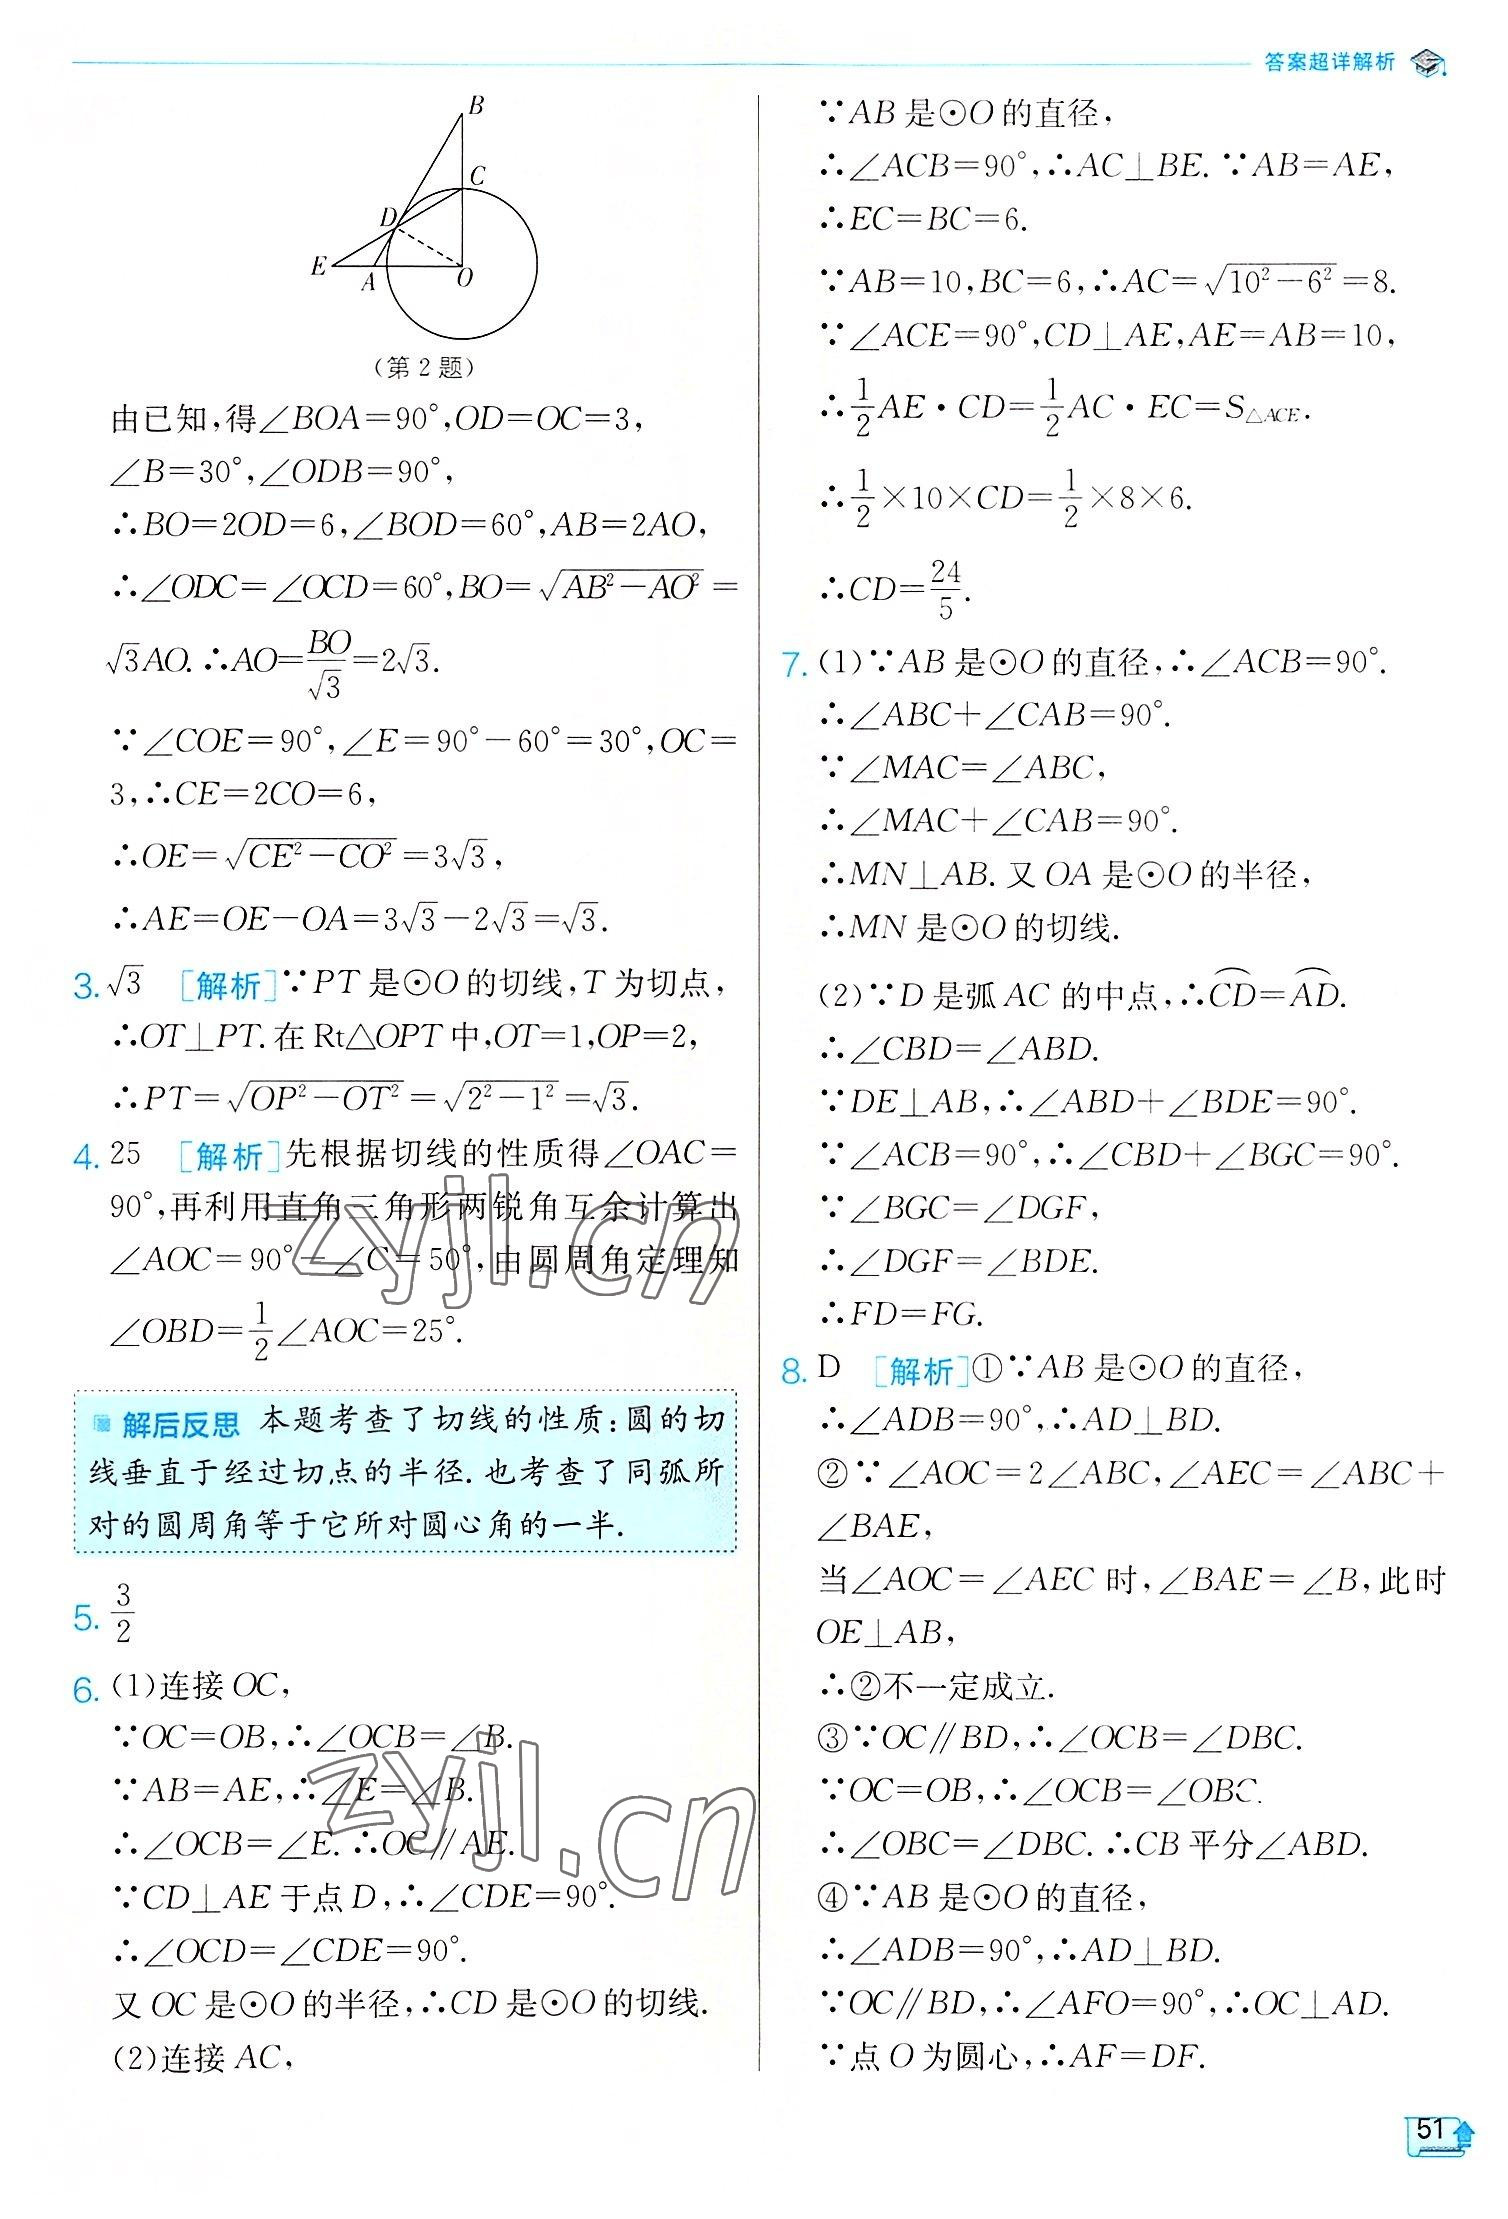 答案超详解析
B
C
D
E
A
O
(第2题)
由已知,得∠BOA=90°,OD=OC=3,
∠B=30°,∠ODB=90°,
∴BO=2OD=6,∠BOD=60°,AB=2AO,
∴∠ODC=∠OCD=60°,BO=√(AB²-AO²)=
√3AO.∴AO=BO/√3=2√3.
∵∠COE=90°,∠E=90°-60°=30°,OC=
3,∴CE=2CO=6,
∴OE=√(CE²-CO²)=3√3,
∴AE=OE-OA=3√3-2√3=√3.
3. √3 [解析]∵PT是⊙O的切线,T为切点,
∴OT⊥PT.在Rt△OPT中,OT=1,OP=2,
∴PT=√(OP²-OT²)=√(2²-1²)=√3.
4. 25 [解析]先根据切线的性质得∠OAC=
90°,再利用直角三角形两锐角互余计算出
∠AOC=90°-∠C=50°,由圆周角定理知
∠OBD=1/2∠AOC=25°.
解后反思 本题考查了切线的性质:圆的切
线垂直于经过切点的半径.也考查了同弧所
对的圆周角等于它所对圆心角的一半.
5. 3/2
6. (1)连接OC,
∵OC=OB,∴∠OCB=∠B.
∵AB=AE,∴∠E=∠B.
∴∠OCB=∠E.∴OC∥AE.
∵CD⊥AE于点D,∴∠CDE=90°.
∴∠OCD=∠CDE=90°.
又OC是⊙O的半径,∴CD是⊙O的切线.
(2)连接AC,
∵AB是⊙O的直径,
∴∠ACB=90°,∴AC⊥BE.∵AB=AE,
∴EC=BC=6.
∵AB=10,BC=6,∴AC=√(10²-6²)=8.
∵∠ACE=90°,CD⊥AE,AE=AB=10,
∴1/2AE·CD=1/2AC·EC=S△ACE.
∴1/2×10×CD=1/2×8×6.
∴CD=24/5.
7. (1)∵AB是⊙O的直径,∴∠ACB=90°.
∴∠ABC+∠CAB=90°.
∵∠MAC=∠ABC,
∴∠MAC+∠CAB=90°.
∴MN⊥AB.又OA是⊙O的半径,
∴MN是⊙O的切线.
(2)∵D是弧AC的中点,∴⌒CD=⌒AD.
∴∠CBD=∠ABD.
∵DE⊥AB,∴∠ABD+∠BDE=90°.
∵∠ACB=90°,∴∠CBD+∠BGC=90°.
∵∠BGC=∠DGF,
∴∠DGF=∠BDE.
∴FD=FG.
8. D [解析]①∵AB是⊙O的直径,
∴∠ADB=90°,∴AD⊥BD.
②∵∠AOC=2∠ABC,∠AEC=∠ABC+
∠BAE,
当∠AOC=∠AEC时,∠BAE=∠B,此时
OE⊥AB,
∴②不一定成立.
③∵OC∥BD,∴∠OCB=∠DBC.
∵OC=OB,∴∠OCB=∠OBC.
∴∠OBC=∠DBC.∴CB平分∠ABD.
④∵AB是⊙O的直径,
∴∠ADB=90°,∴AD⊥BD.
∵OC∥BD,∴∠AFO=90°,∴OC⊥AD.
∵点O为圆心,∴AF=DF.
51
zyjl.cn
zyjl.cn